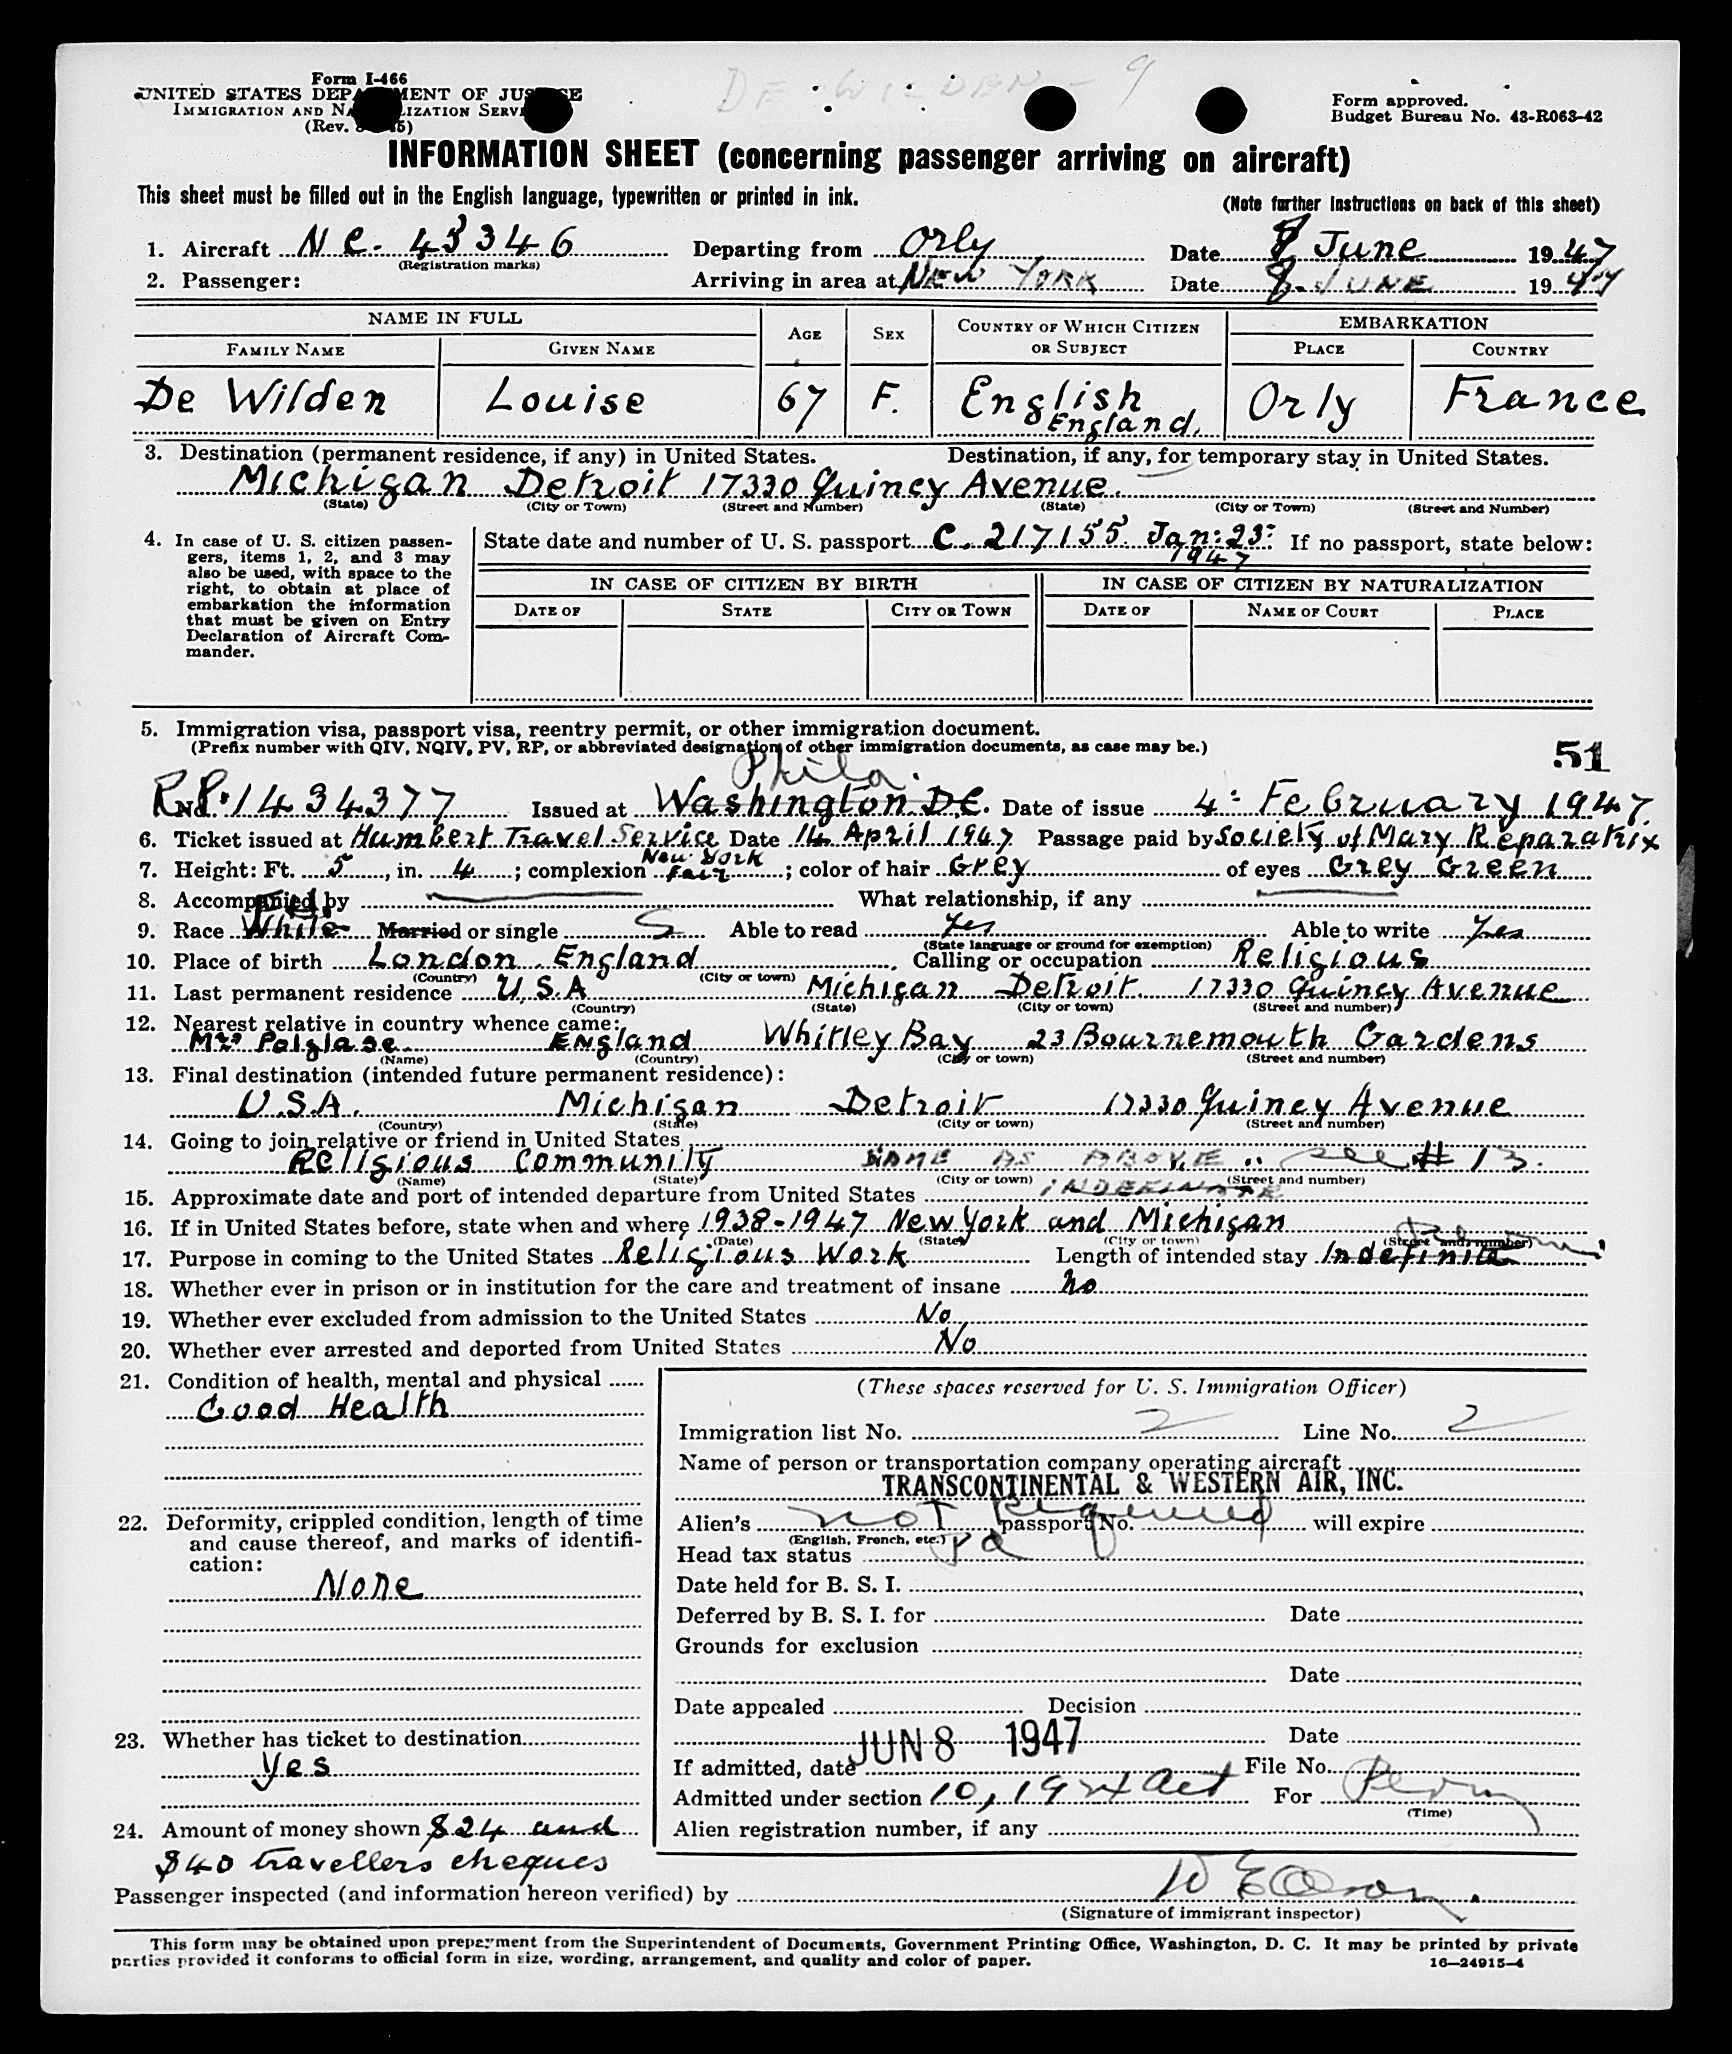 DE WILDEN - 9
Form I-466
UNITED STATES DEPARTMENT OF JUSTICE
IMMIGRATION AND NATURALIZATION SERVICE
(Rev.
Form approved.
Budget Bureau No. 43-R063-42
INFORMATION SHEET (concerning passenger arriving on aircraft)
This sheet must be filled out in the English language, typewritten or printed in ink.
(Note further instructions on back of this sheet)
1. Aircraft N C. 45346 Departing from Orly Date 8 June 1947
(Registration marks)
2. Passenger: Arriving in area at NEW YORK Date 8 JUNE 1947
NAME IN FULL AGE SEX COUNTRY OF WHICH CITIZEN OR SUBJECT EMBARKATION
FAMILY NAME GIVEN NAME PLACE COUNTRY
De Wilden Louise 67 F. English Orly France
England.
3. Destination (permanent residence, if any) in United States. Destination, if any, for temporary stay in United States.
Michigan Detroit 17330 Quincy Avenue.
(State) (City or Town) (Street and Number) (State) (City or Town) (Street and Number)
4. In case of U. S. citizen passengers, items 1, 2, and 3 may also be used, with space to the right, to obtain at place of embarkation the information that must be given on Entry Declaration of Aircraft Commander.
State date and number of U. S. passport C. 217155. Jan: 23: 1947 If no passport, state below:
IN CASE OF CITIZEN BY BIRTH IN CASE OF CITIZEN BY NATURALIZATION
DATE OF STATE CITY OR TOWN DATE OF NAME OF COURT PLACE
5. Immigration visa, passport visa, reentry permit, or other immigration document.
(Prefix number with QIV, NQIV, PV, RP, or abbreviated designation of other immigration documents, as case may be.)
51
Phila.
No. R.P. 1434377 Issued at Washington D.C. Date of issue 4: February 1947.
6. Ticket issued at Humbert Travel Service Date 14 April 1947 Passage paid by Society of Mary Reparatrix
New York
7. Height: Ft. 5, in. 4; complexion Fair; color of hair Grey of eyes Grey Green
8. Accompanied by What relationship, if any
9. Race White Married or single S Able to read Yes Able to write Yes
(State language or ground for exemption)
10. Place of birth London, England Calling or occupation Religious
(Country) (City or town)
11. Last permanent residence U.S.A Michigan Detroit. 17330 Quincy Avenue
(Country) (State) (City or town) (Street and number)
12. Nearest relative in country whence came:
Mrs Polglase England Whitley Bay 23 Bournemouth Gardens
(Name) (Country) (City or town) (Street and number)
13. Final destination (intended future permanent residence):
U.S.A. Michigan Detroit 17330 Quincy Avenue
(Country) (State) (City or town) (Street and number)
14. Going to join relative or friend in United States
Religious Community SAME AS ABOVE .. see # 13.
(Name) (State) (City or town) (Street and number)
15. Approximate date and port of intended departure from United States INDEFINATE
16. If in United States before, state when and where 1938-1947 New York and Michigan
(Date) (State) (City or town) (Street and number)
17. Purpose in coming to the United States Religious Work Length of intended stay Indefinite
18. Whether ever in prison or in institution for the care and treatment of insane no
19. Whether ever excluded from admission to the United States No
20. Whether ever arrested and deported from United States No
21. Condition of health, mental and physical
Good Health
22. Deformity, crippled condition, length of time and cause thereof, and marks of identification:
None
23. Whether has ticket to destination
Yes
24. Amount of money shown $24 and
$40 travellers cheques
(These spaces reserved for U. S. Immigration Officer)
Immigration list No. 2 Line No. 2
Name of person or transportation company operating aircraft
TRANSCONTINENTAL & WESTERN AIR, INC.
Alien's not Required passport No. will expire
(English, French, etc.)
Head tax status Pd
Date held for B. S. I.
Deferred by B. S. I. for Date
Grounds for exclusion
Date
Date appealed Decision
Date
If admitted, date JUN 8 1947 File No.
Admitted under section 10, 1924 Act For Perm
(Time)
Alien registration number, if any
Passenger inspected (and information hereon verified) by
(Signature of immigrant inspector)
This form may be obtained upon prepayment from the Superintendent of Documents, Government Printing Office, Washington, D. C. It may be printed by private
parties provided it conforms to official form in size, wording, arrangement, and quality and color of paper.
16—24915-4